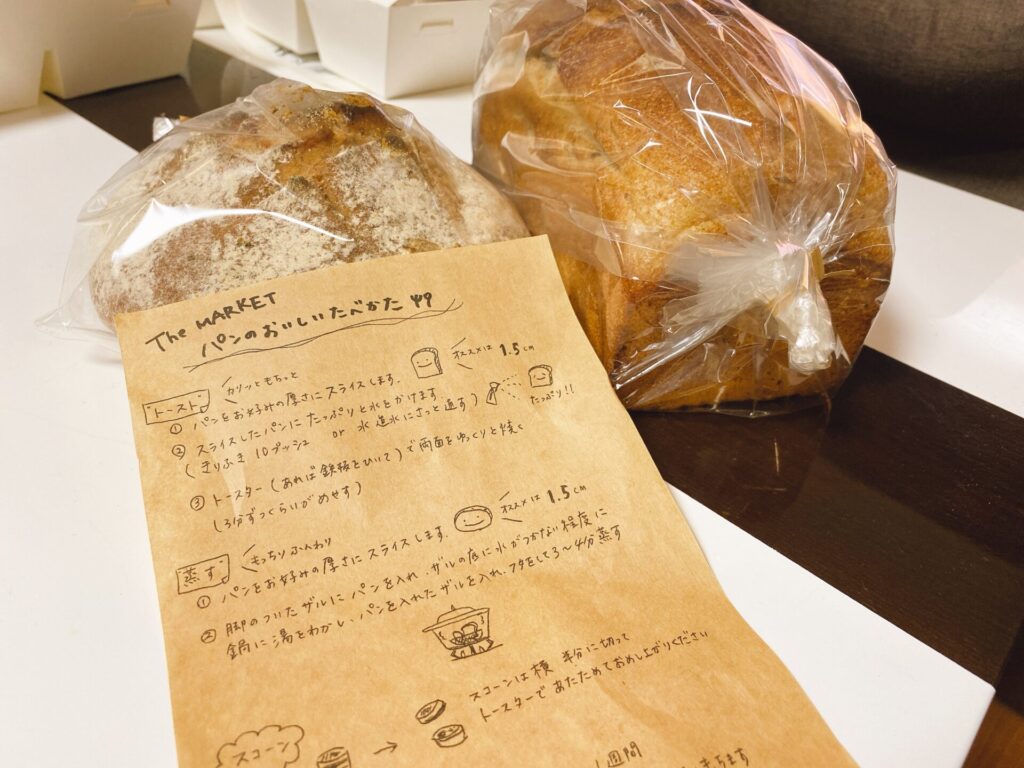 The MARKET
パンのおいしいたべかた
トースト カリッともちっと
① パンをお好みの厚さにスライスします. オススメは 1.5cm
② スライスしたパンにたっぷりと水をかけます. たっぷり!!
(きりふき 10プッシュ or 水道水にさっと通す)
③ トースター(あれば鉄板をひいて)で両面をゆっくりと焼く
(3分ずつくらいがめやす)
蒸す もっちりふんわり
① パンをお好みの厚さにスライスします. オススメは 1.5cm
② 脚のついたザルにパンを入れ、ザルの底に水がつかない程度に
鍋に湯をわかし、パンを入れたザルを入れ、フタをして3〜4分蒸す
スコーン
スコーンは横半分に切って
トースターであたためておめし上がりください
1週間